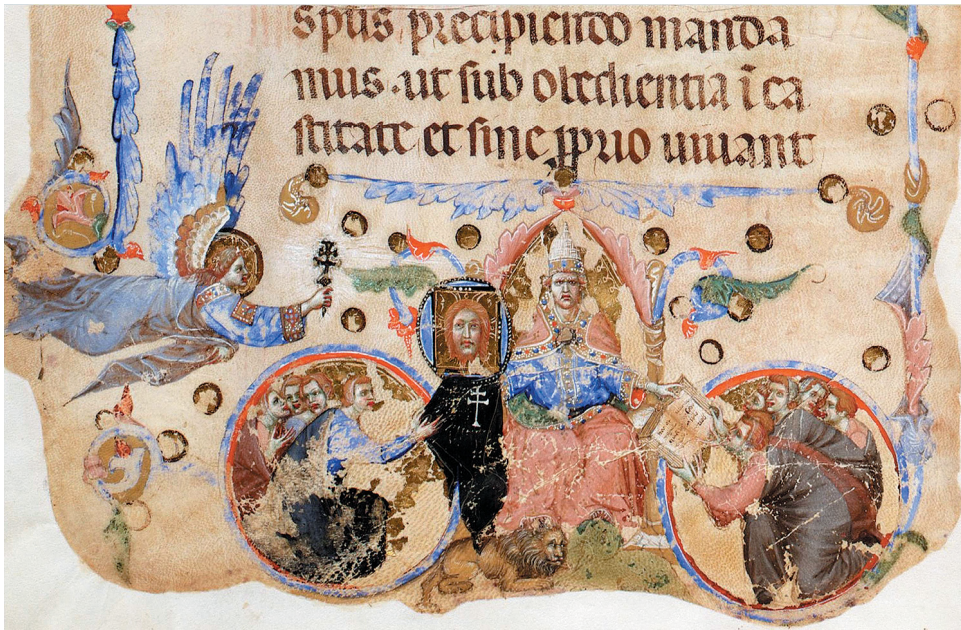 sp̄tis precipiendo manda
mus. ut sub obedientia i̅ ca
stitate et sine ꝓprio uiuant